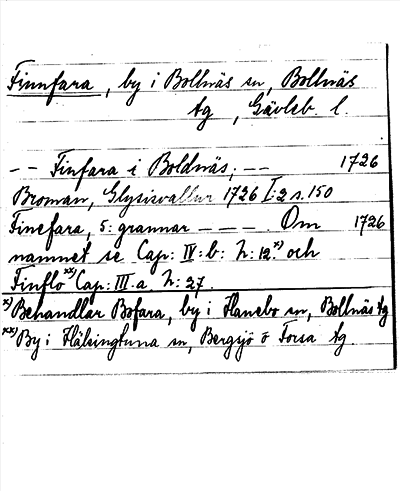 Finnfara, by i Bollnäs sn, Bollnäs
tg, Gävleb. l.
-- Finfara i Boldnäs, -- 1726
Broman, Glysisvallur 1726 I:2 s. 150
Finefara, 5: grannar - - - . Om 1726
namnet se Cap: IV: b: N: 12.x) och
Finflo xx) Cap: III. a. N: 27.
x) Behandlar Bofara, by i Hanebo sn, Bollnäs tg
xx) By i Hälsingtuna sn, Bergsjö o Forsa tg.